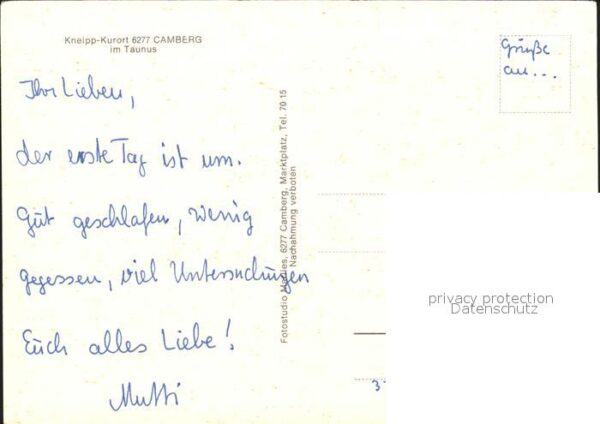 Kneipp-Kurort 6277 CAMBERG
im Taunus
Grüße
an...
Ihr Lieben,
der erste Tag ist um.
Gut geschlafen, wenig
gegessen, viel Untersuchungen
Euch alles Liebe!
Mutti
Fotostudio 6277 Camberg, Marktplatz, Tel. 70 15
Nachahmung verboten
privacy protection
Datenschutz
3